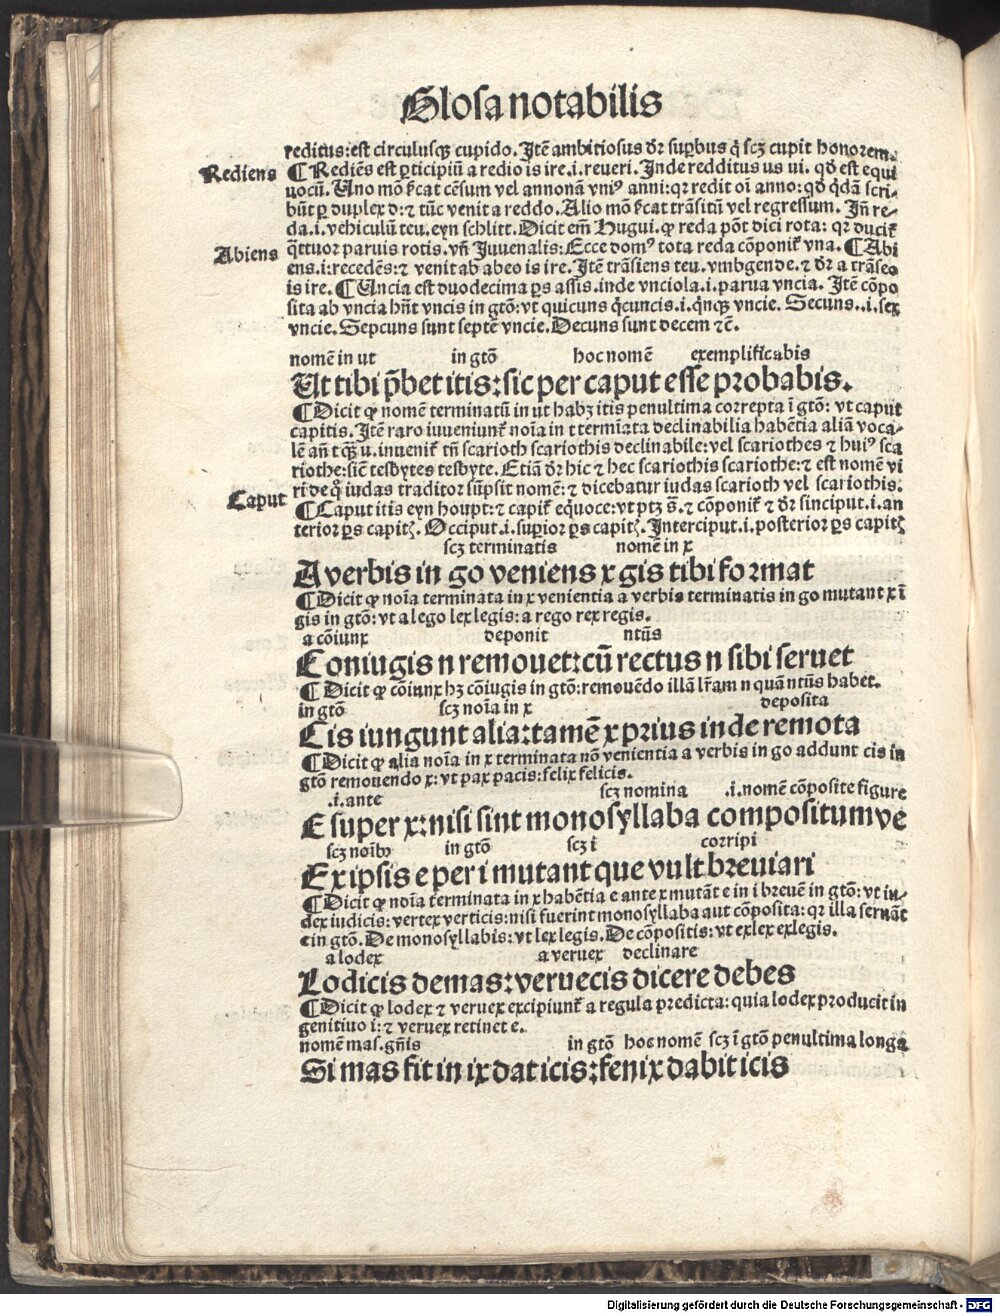 Glosa notabilis
reditus:est circulusqꝫ cupido. Itē ambitiosus dr̄ suꝑbus q̇ scꝫ cupit honorem.
Rediens
¶ Rediēs est ꝑticipiū a redio is ire.i.reveri. Inde redditus us ui. qd̄ est equi
uocū. Uno mō ſīcat cēsum vel annonā vniꝰ anni:qꝛ redit oī anno:qd̄ q̇dā scri-
būt ꝑ duplex d:⁊ tūc venit a reddo. Alio mō ſīcat trāsitū vel regressum. Iñ re-
da.i.vehiculū teu.eyn schlitt. Dicit em̄ Hugui. ꝙ reda pōt dici rota: qꝛ ducit᷑
Abiens
q̄ttuor paruis rotis. vñ Juuenalis: Ecce domꝰ tota reda cōponit᷑ vna. ¶ Abi
ens.i:recedēs:⁊ venit ab abeo is ire. Itē trāsiens teu. vmbgende.⁊ dr̄ a trāseo
is ire. ¶ Uncia est duodecima ꝑs assis.inde vnciola.i.parua vncia. Itē cōpo
sita ab vncia hn̄t vncis in gtō: vt quicuns q̇cuncis.i.q̇nqꝫ vncie. Secuns..i.sex
vncie. Sepcuns sunt septē vncie. Decuns sunt decem ⁊c̄.
nomē in ut in gtō hoc nomē exemplificabis
Ut tibi p̄bet itis:sic per caput esse probabis.
¶ Dicit ꝙ nomē terminatū in ut habꝫ itis penultima correpta ī gtō: vt caput
capitis. Itē raro iuueniunt᷑ noīa in t termīata declinabilia habētia aliā voca-
lē añ t qꝫ u.inuenit᷑ tn̄ scarioth scariothis declinabile:vel scariothes ⁊ huiꝰ sca
riothe:sicut tesbytes tesbyte. Etiā dr̄ hic ⁊ hec scariothis scariothe:⁊ est nomē vi
ri de q̊ iudas traditor sūpsit nomē:⁊ dicebatur iudas scarioth vel scariothis.
Caput
¶ Caput itis eyn houpt:⁊ capit᷑ equoce:vt ptꝫ s̄. ⁊ cōponit᷑ ⁊ dr̄ sinciput.i.an
terior ꝑs capit₎. Occiput.i.suꝑior ꝑs capit₎. Interciput.i.posterior ꝑs capit₎
scꝫ terminatis nomē in x
A verbis in go veniens x gis tibi format
¶ Dicit ꝙ noīa terminata in x venientia a verbis terminatis in go mutant x ī
gis in gtō: vt a lego lex legis: a rego rex regis.
a cōiunx deponit ntūs
Coniugis n remouet:cū rectus n sibi seruet
¶ Dicit ꝙ cōiunx hꝫ cōiugis in gtō:remouēdo illā lr̄am n quā ntūs habet.
in gtō scꝫ noīa in x deposita
Cis iungunt alia:tamē x prius inde remota
¶ Dicit ꝙ alia noīa in x terminata nō venientia a verbis in go addunt cis in
gtō remouendo x: vt pax pacis:felix felicis.
.i.ante scꝫ nomina .i.nomē cōposite figure
E super x:nisi sint monosyllaba compositumve
scꝫ noībꝫ in gtō scꝫ i corripi
Ex ipsis e per i mutant que vult breuiari
¶ Dicit ꝙ noīa terminata in x habētia e ante x mutāt e in i breuē in gtō: vt in-
dex iudicis:vertex verticis:nisi fuerint monosyllaba aut cōposita: qꝛ illa seruāt
e in gtō. De monosyllabis: vt lex legis. De cōpositis: vt exlex exlegis.
a lodex a veruex declinare
Lodicis demas:veruecis dicere debes
¶ Dicit ꝙ lodex ⁊ veruex excipiunt᷑ a regula predicta: quia lodex producit in
genitiuo i:⁊ veruex retinet e.
nomē mas.gn̄is in gtō hoc nomē scꝫ ī gtō penultima longa
Si mas fit in ix dat icis:fenix dabit icis
Digitalisierung gefördert durch die Deutsche Forschungsgemeinschaft - DFG